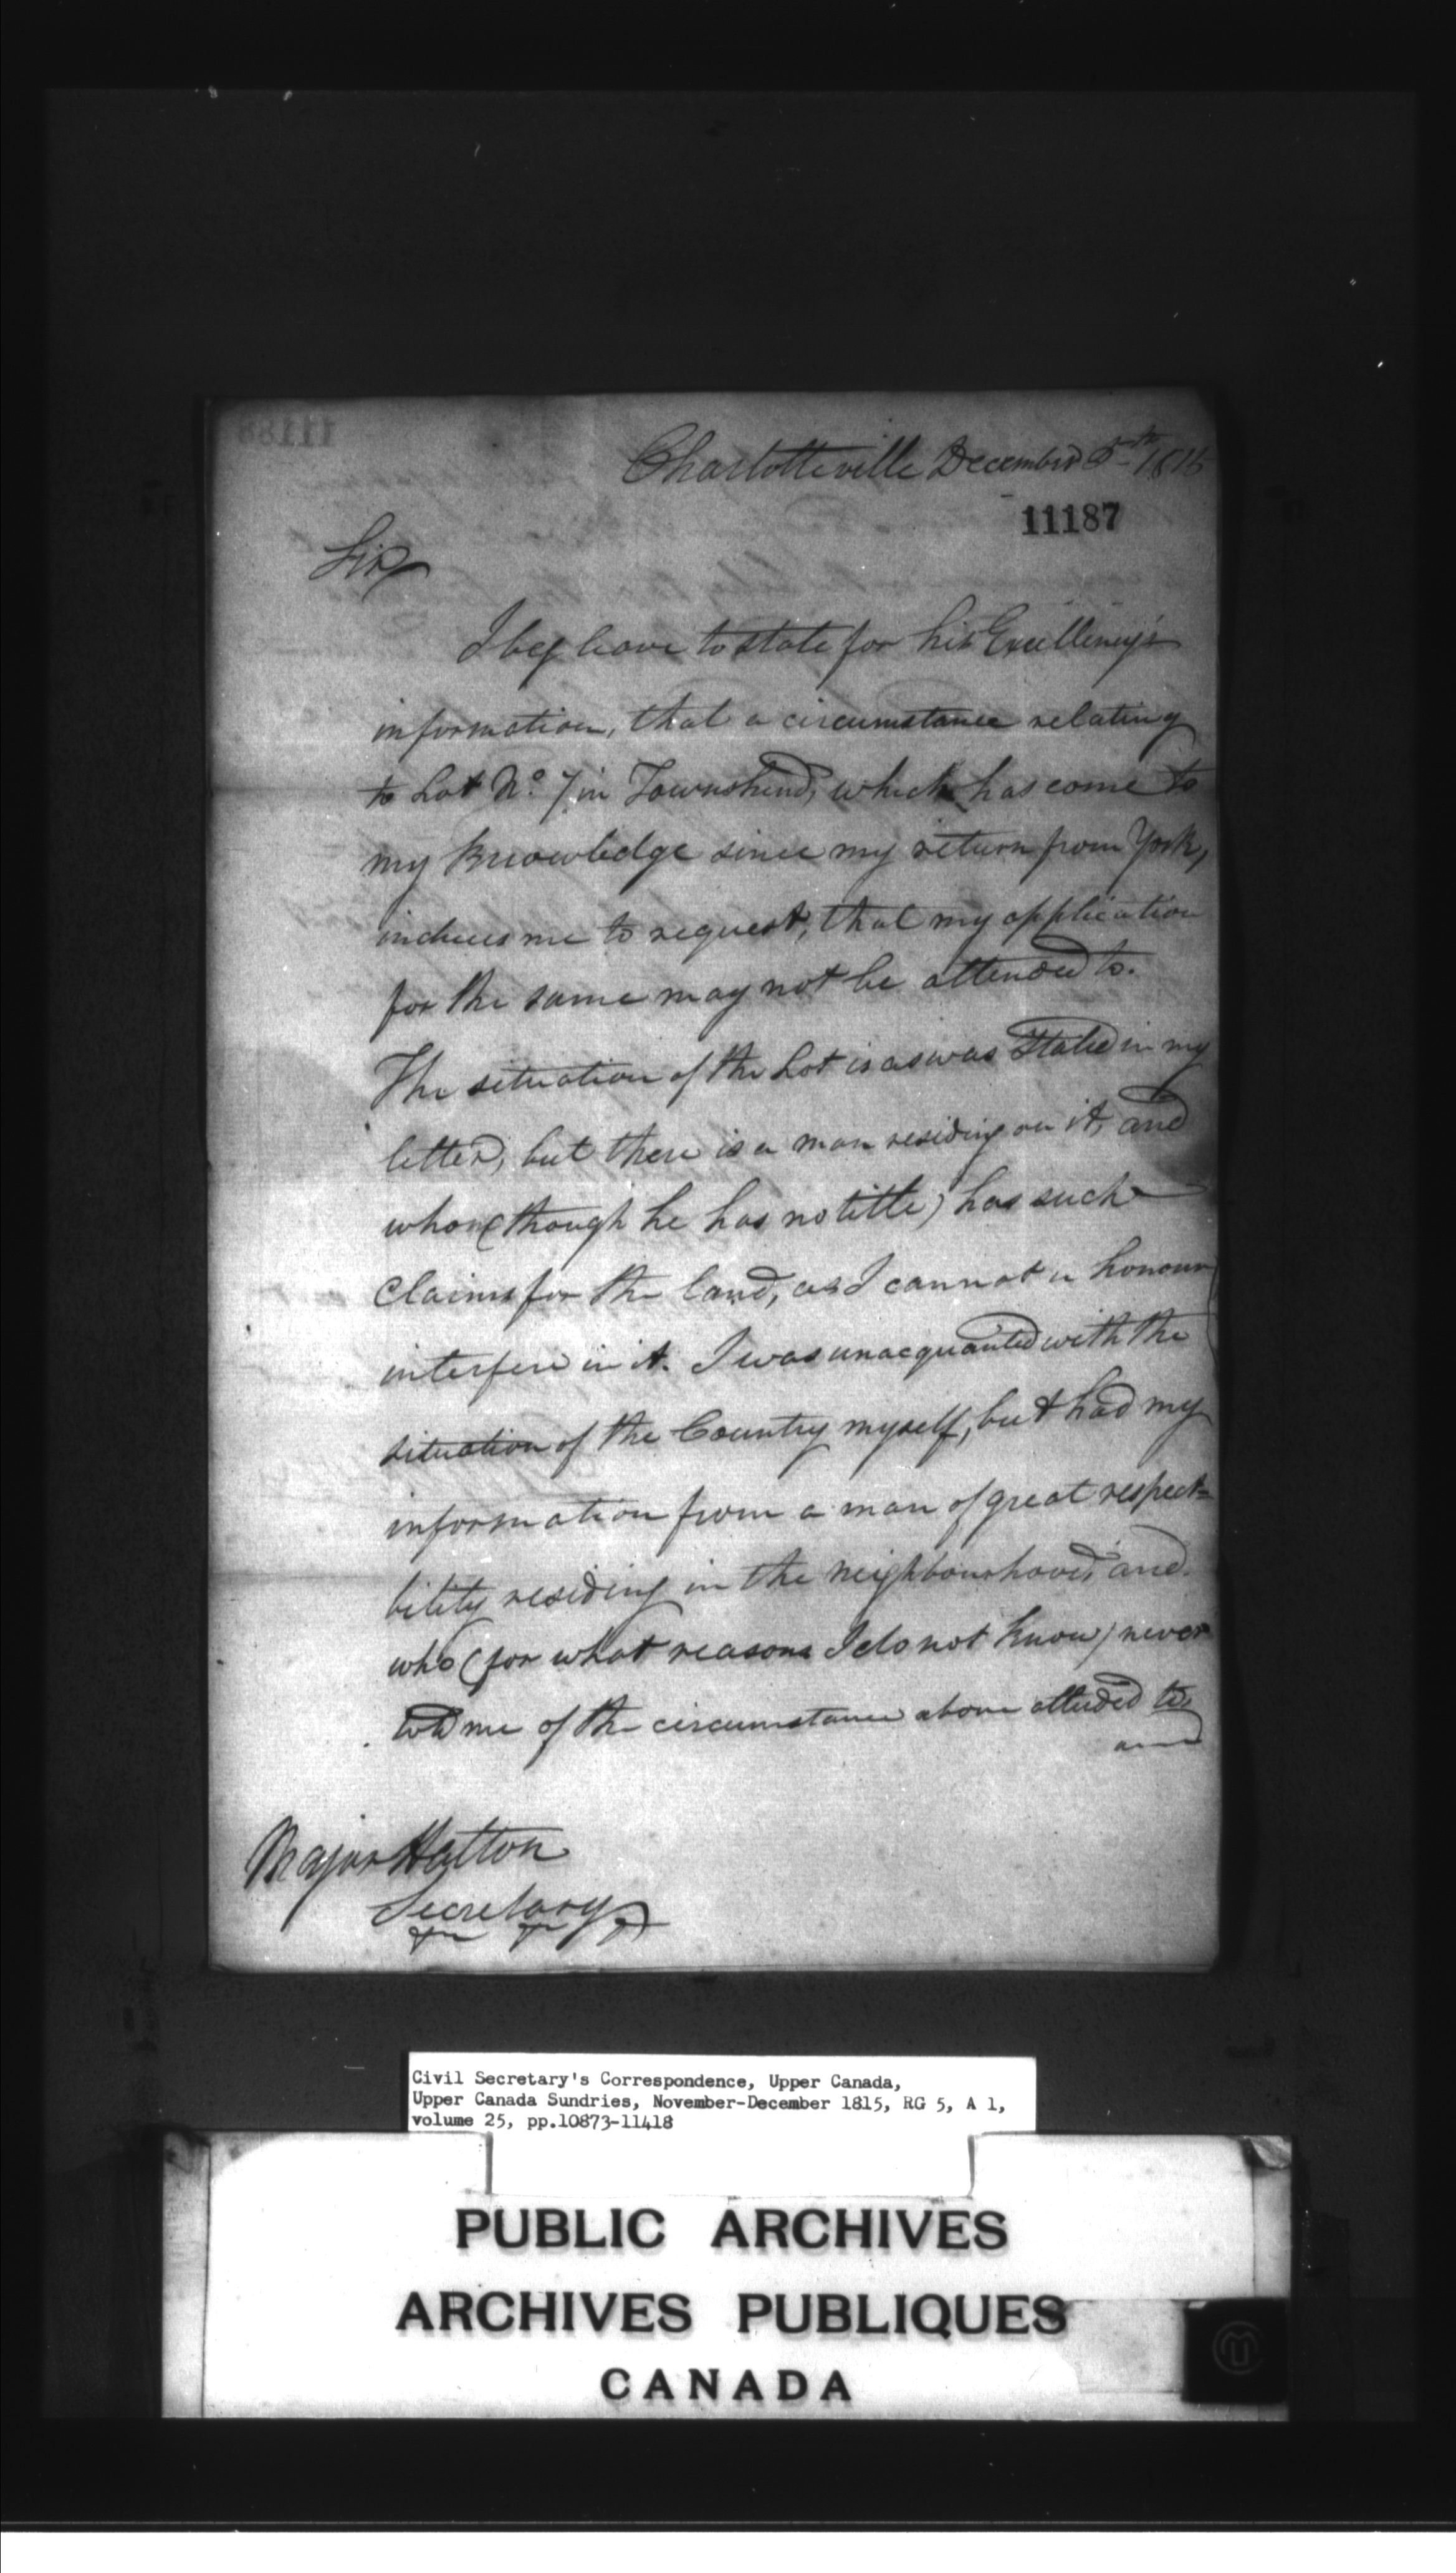 Charlotteville December 5th 1815
11187
Sir
I beg leave to state for his Excellency's
information, that a circumstance relating
to Lot No. 7 in Townshend, which has come to
my knowledge since my return from York,
induces me to request, that my application
for the same may not be attended to.
The situation of the Lot is as was stated in my
letter, but there is a man residing on it, and
who (though he has no title) has such
claims for the land, as I cannot in honour
interfere in it. I was unacquainted with the
situation of the Country myself, but had my
information from a man of great respect=
bility residing in the neighbourhood, and
who (for what reasons I do not know) never
told me of the circumstance above alluded to
and
Major Halton
Secretary
Civil Secretary's Correspondence, Upper Canada,
Upper Canada Sundries, November-December 1815, RG 5, A 1,
volume 25, pp.10873-11418
PUBLIC ARCHIVES
ARCHIVES PUBLIQUES
CANADA